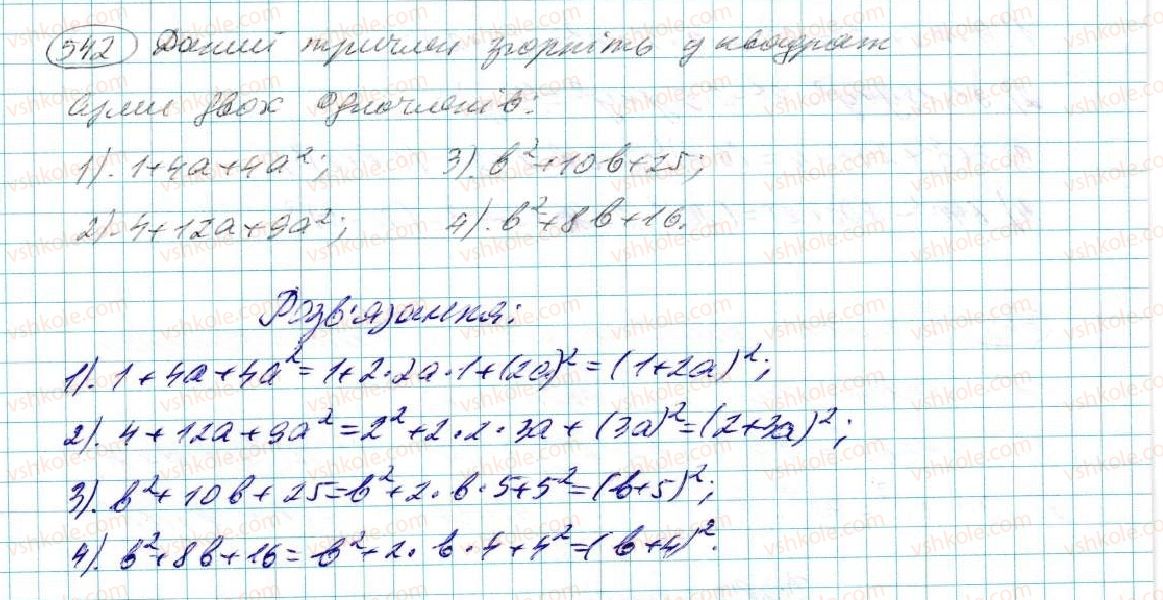 542 Даний тричлен згорніть у квадрат
суми двох одночленів:
1). 1+4a+4a²; 3). b²+10b+25;
2). 4+12a+9a²; 4). b²+8b+16.
Розв'язання:
1). 1+4a+4a²=1+2·2a·1+(2a)²=(1+2a)²;
2). 4+12a+9a²=2²+2·2·3a+(3a)²=(2+3a)²;
3). b²+10b+25=b²+2·b·5+5²=(b+5)²;
4). b²+8b+16=b²+2·b·4+4²=(b+4)².
vshkole.com